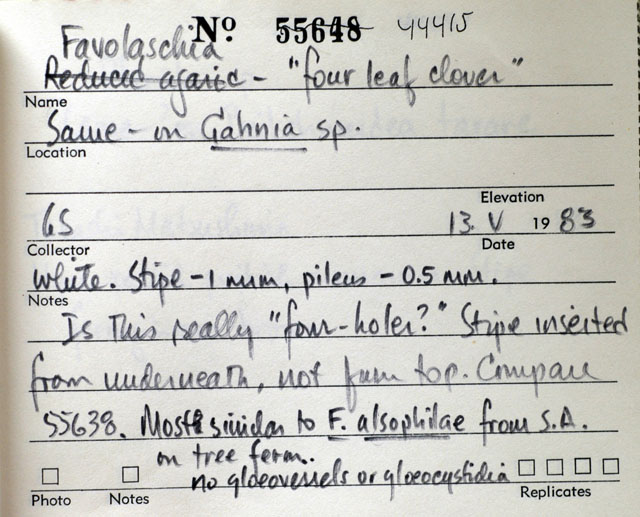 Favolaschia
No 55648 44415
Reduced agaric - "four leaf clover"
Name
Same - on Gahnia sp.
Location
Elevation
GS 13. V 1983
Collector Date
white. Stipe - 1 mm, pileus - 0.5 mm.
Notes
Is this really "four-holer?" Stipe inserted
from underneath, not from top. Compare
55638. Most similar to F. alsophilae from S.A.
on tree fern..
no gloeovessels or gloeocystidia
Photo Notes Replicates